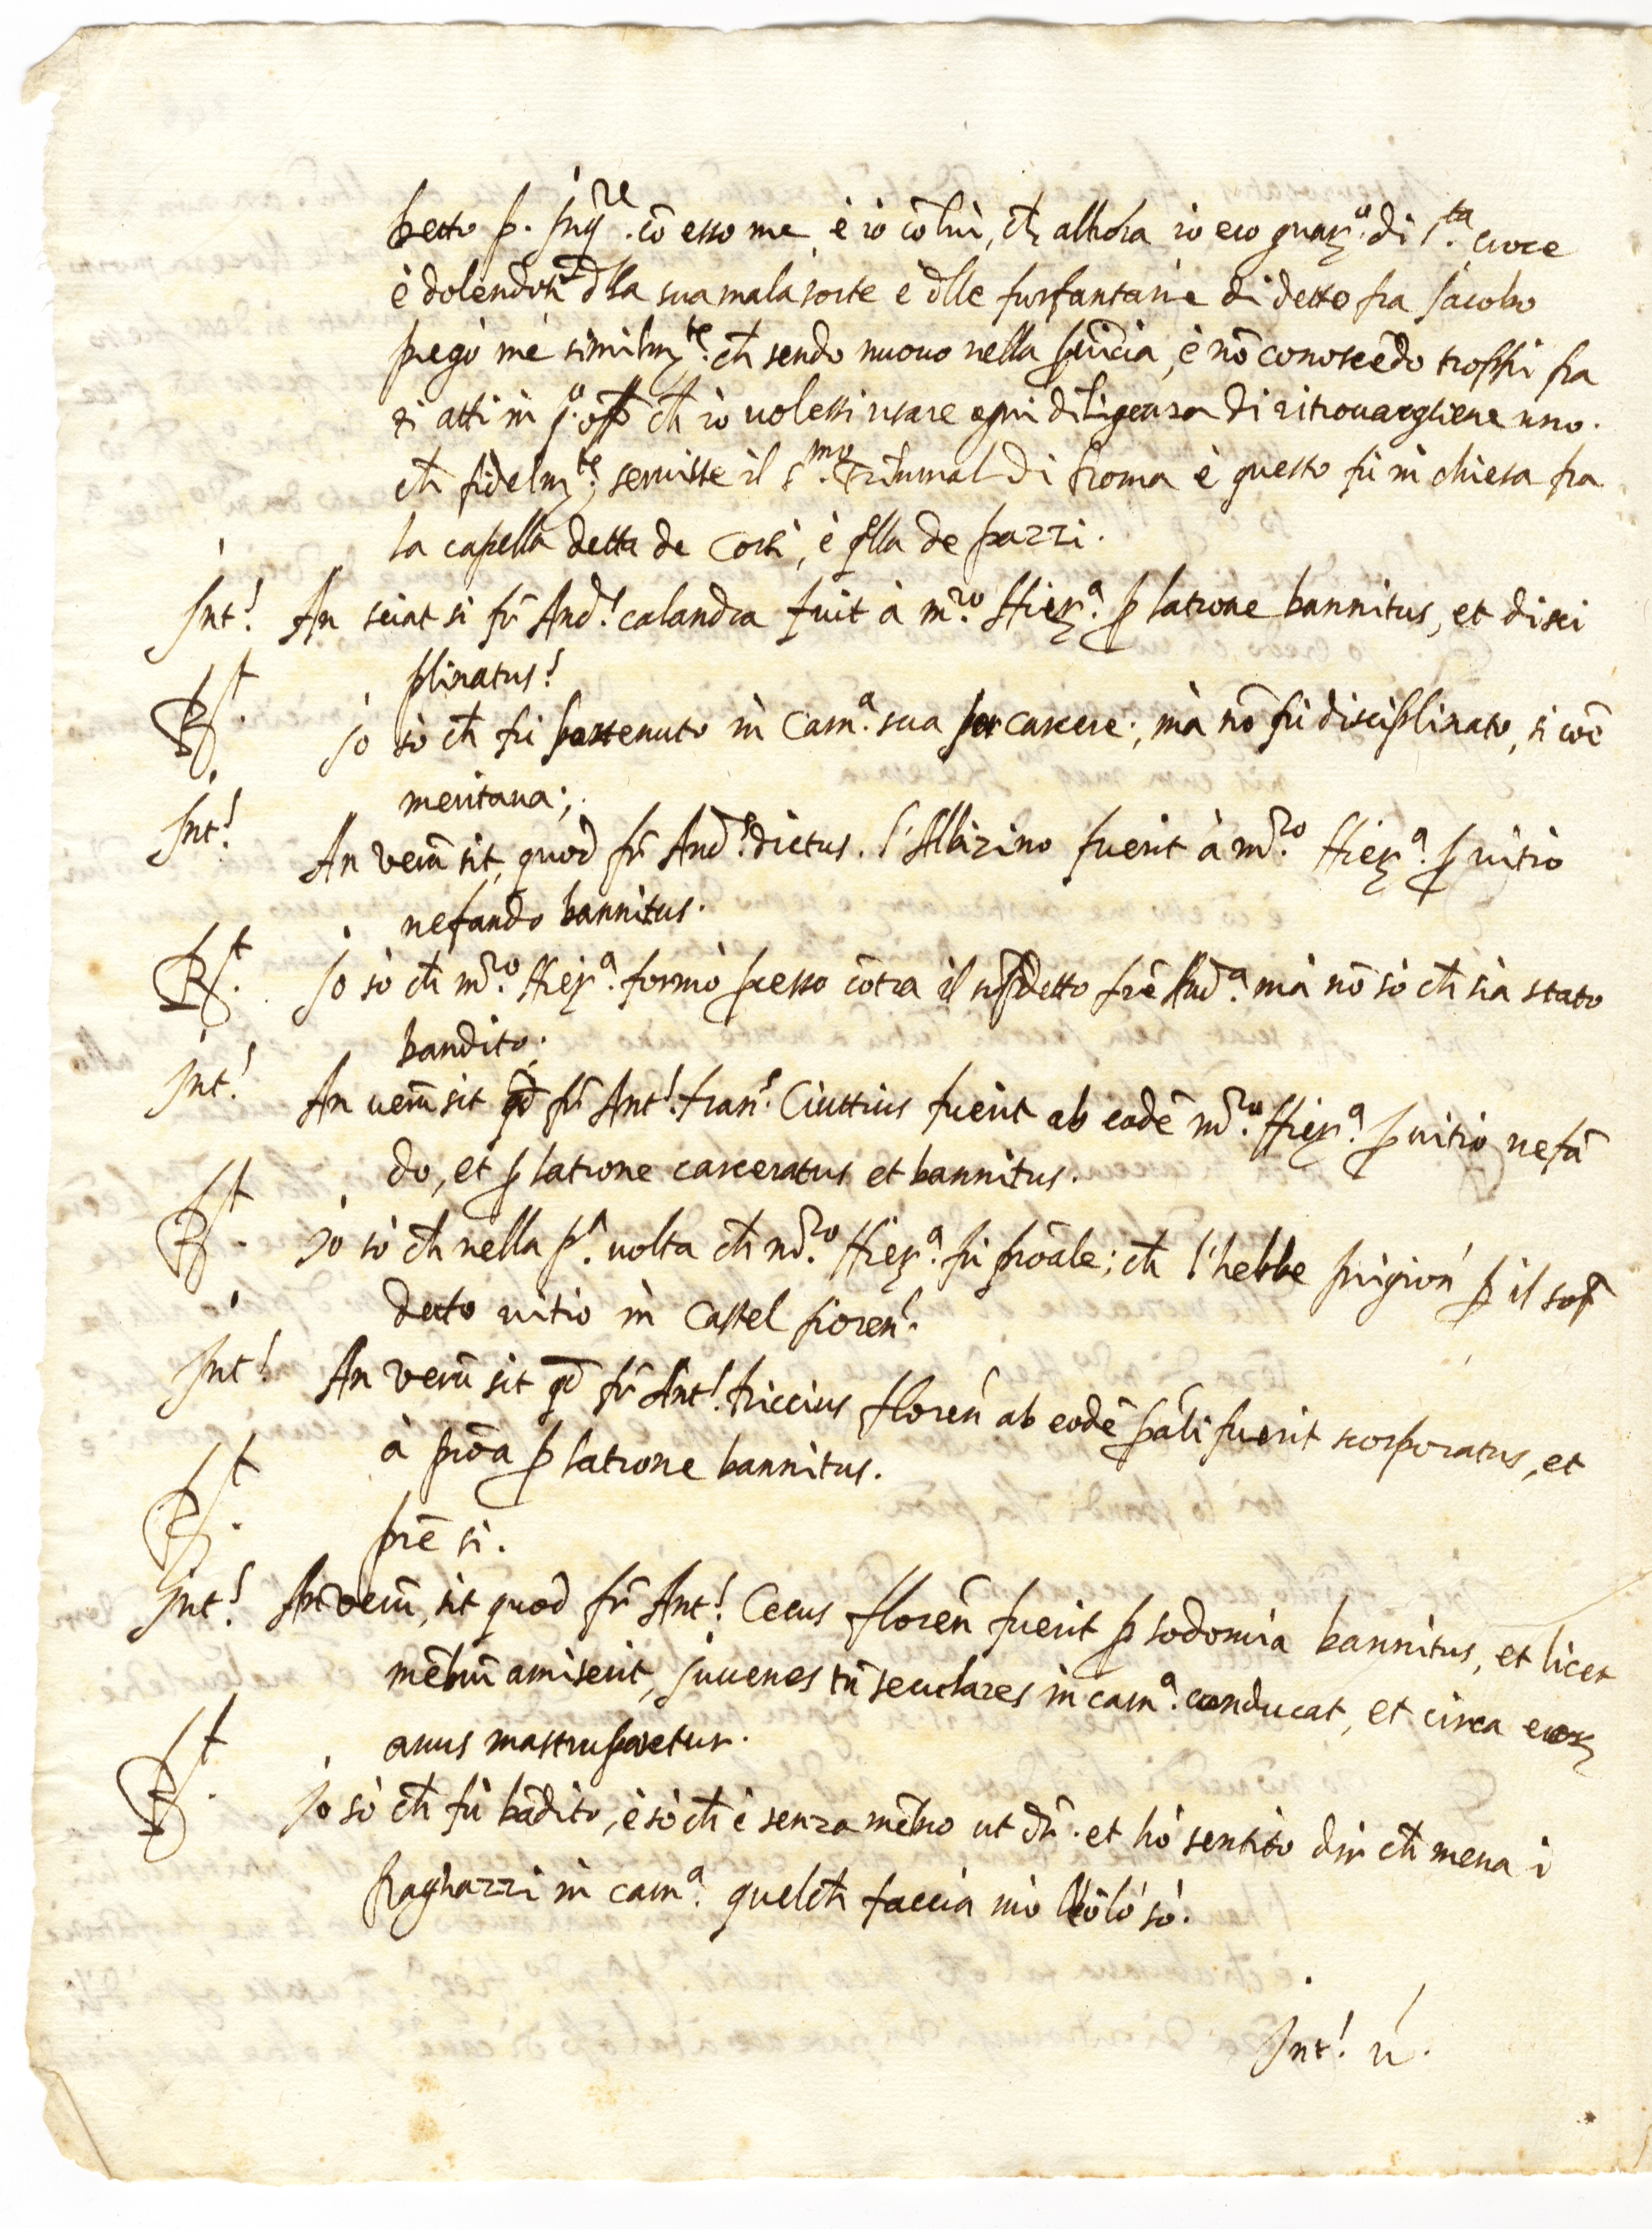 detto p. Inq.re cō esso me, è io cō lui, ch̄ allhora io ero guar.o di S.ta croce
è dolendosi d̄lla sua mala sorte è d̄lle furfantarie di detto fra Jacobo
pregò me similm.te ch̄ sendo nuovo nella p̄vincia, è nō conoscēdo troppi fra
ti atti in q.o off.o ch̄ io volessi usare ogni diligenza di ritrovargliene uno.
ch̄ fidelm.te servisse il S.mo Tribunal di Roma è questo fù in chiesa fra
la capella detta de Corsi, è q̄lla de pazzi.
Int.s An sciat si fr̄ And.s calandra fuit à m.ro Hier.o p̱ latrone bannitus, et disci
plinatus?
R.t Io sò ch̄ fù sostenuto in Cam.a sua per carcere; mà nō fù disciplinato, si coē
meritava;
Int.s An verū sit, quod fr̄ And.s dictus l'Albizino fuerit à m.ro Hier.o p̱ vitio
nefando bannitus.
R.t Io sò ch̄ m.ro Hier.o formò p̱cesso cōtra il sop̄detto frē And.a mà nō sò ch̄ sia stato
bandito;
Int.s An verū sit qd̄ fr̄ Ant.s fran.s Ciuttius fuerit ab eodē m.ro Hier.o p̱ vitio nefā
do, et p̱ latrone carceratus et bannitus.
R.t Io sò ch̄ nella p.a volta ch̄ m.ro Hier.o fù proāle; ch̄ l'hebbe prigion̄ p̱ il sop̄
detto vitio in Castel fioren.o
Int.s An verū sit qd̄ fr̄ Ant.s Riccius floren̄ ab eodē p̄āli fuerit scorporatus, et
à proā p̱ latrone bannitus.
R.t prē si.
Int.s An verū, sit quod fr̄ Ant.s Cecus floren̄ fuerit p̱ sodomia bannitus, et licet
mēbrū amiserit, juvenes tn̄ seculares in cam.a conducat, et circa eorꝝ
anus mastrupetur.
R.t Io sò ch̄ fù bādito, è sò ch̄ è senza mēbro ut dr̄. et hò sentito dir ch̄ mena i
Raghazzi in cam.a quelch̄ faccia mò nō lo sò.
Int.s n.